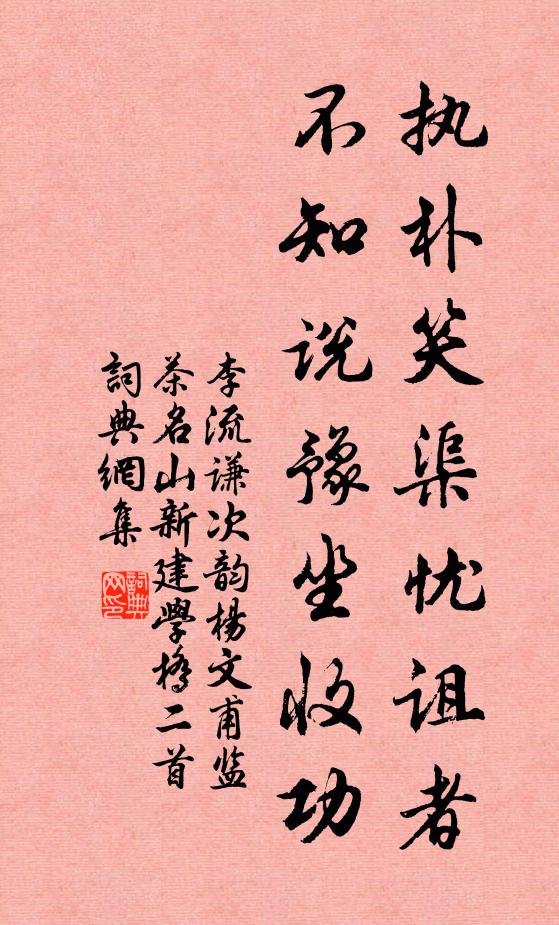 执朴笑渠忧诅者
不知说豫坐收功
李流谦次韵杨文甫监
茶名山新建學橋二首
詞典網集
詞典
网印